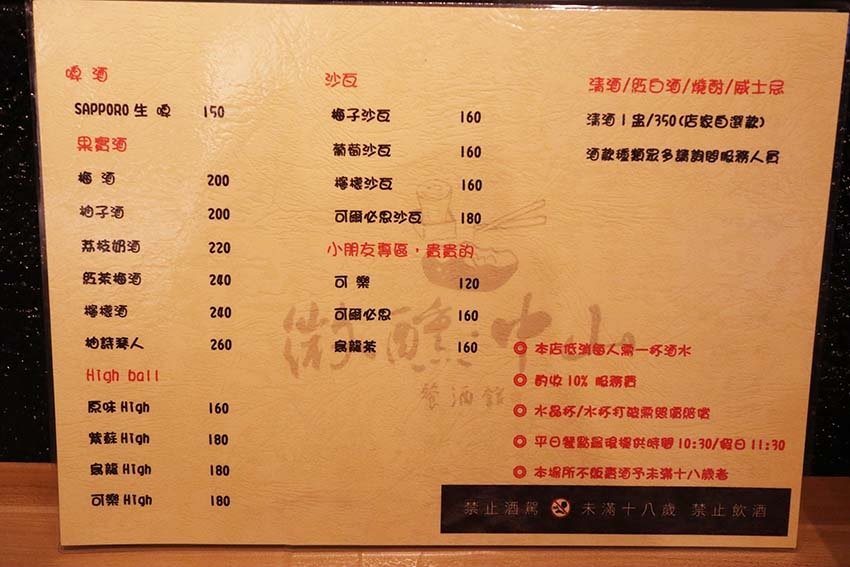 啤酒
SAPPORO 生 啤 150
果實酒
梅 酒 200
柚子酒 200
荔枝奶酒 220
紅茶梅酒 240
檸檬酒 240
柚詩琴人 260
High ball
原味 High 160
紫蘇 High 180
烏龍 High 180
可樂 High 180
沙瓦
梅子沙瓦 160
葡萄沙瓦 160
檸檬沙瓦 160
可爾必思沙瓦 180
小朋友專區，貴貴的
可 樂 120
可爾必思 160
烏龍茶 160
清酒/紅白酒/燒酎/威士忌
清酒 1 盅/350(店家自選款)
酒款種類眾多請詢問服務人員
微醺中山
餐酒館
◎ 本店低消每人需一杯酒水
◎ 酌收 10% 服務費
◎ 水晶杯/水杯打破需照價賠償
◎ 平日餐點最晚提供時間 10:30/假日 11:30
◎ 本場所不販賣酒予未滿十八歲者
禁止酒駕 未滿十八歲 禁止飲酒